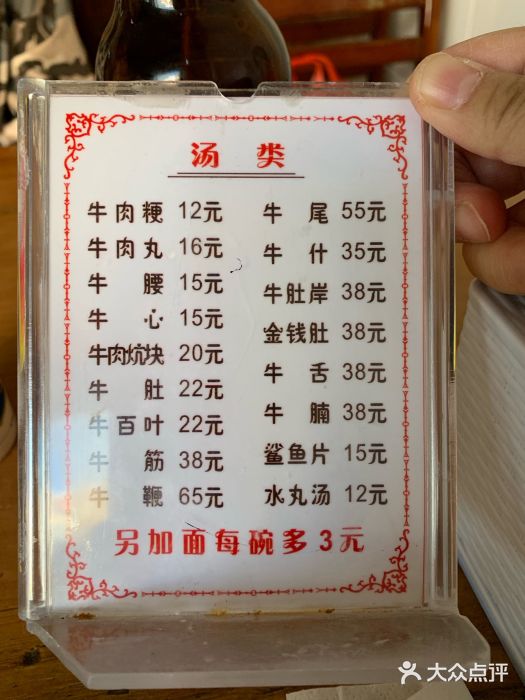 汤类
牛肉粳 12元
牛肉丸 16元
牛腰 15元
牛心 15元
牛肉炕块 20元
牛肚 22元
牛百叶 22元
牛筋 38元
牛鞭 65元
牛尾 55元
牛什 35元
牛肚岸 38元
金钱肚 38元
牛舌 38元
牛腩 38元
鲨鱼片 15元
水丸汤 12元
另加面每碗多3元
大众点评